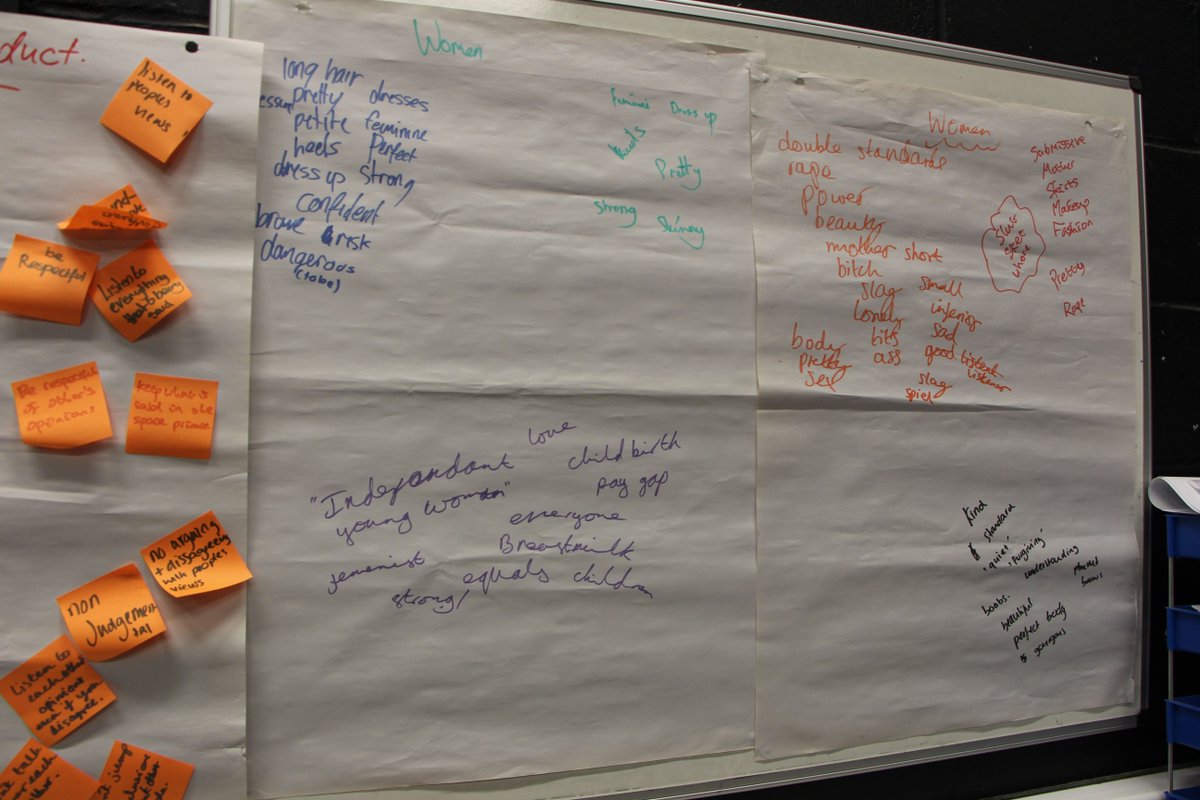 duct.
listen to
peoples
views,
be
Respectful
Listen to
everything
that's being
said
Be respectful
of other's
oponions
keep what is
said in the
space private.
no arguing
+ disagreeing
with peoples
views
non
Judgement
tal
Listen to
each other
opinions
even if you
disagree.
talk
each
Women
long hair
pretty dresses
petite feminine
heels Perfect
dress up strong
confident
brave risk
dangerous
(to be)
Feminine Dress up
Pretty
Strong Skinny
love
"Independant childbirth
young woman" pay gap
everyone
Breastmilk
femenist
equals children
strong!
Women
double standard
rape
power
beauty
mother short
bitch
slag small
lonely inferior
body tits sad
pretty ass good listener
sex slag
Submissive
Mother
Skirts
Makeup
Fashion
Pretty
Rape
Sluts
whore
kind
standard
'quiet' 'forgiving'
understanding
boobs.
beautiful
perfect body
gorgeous